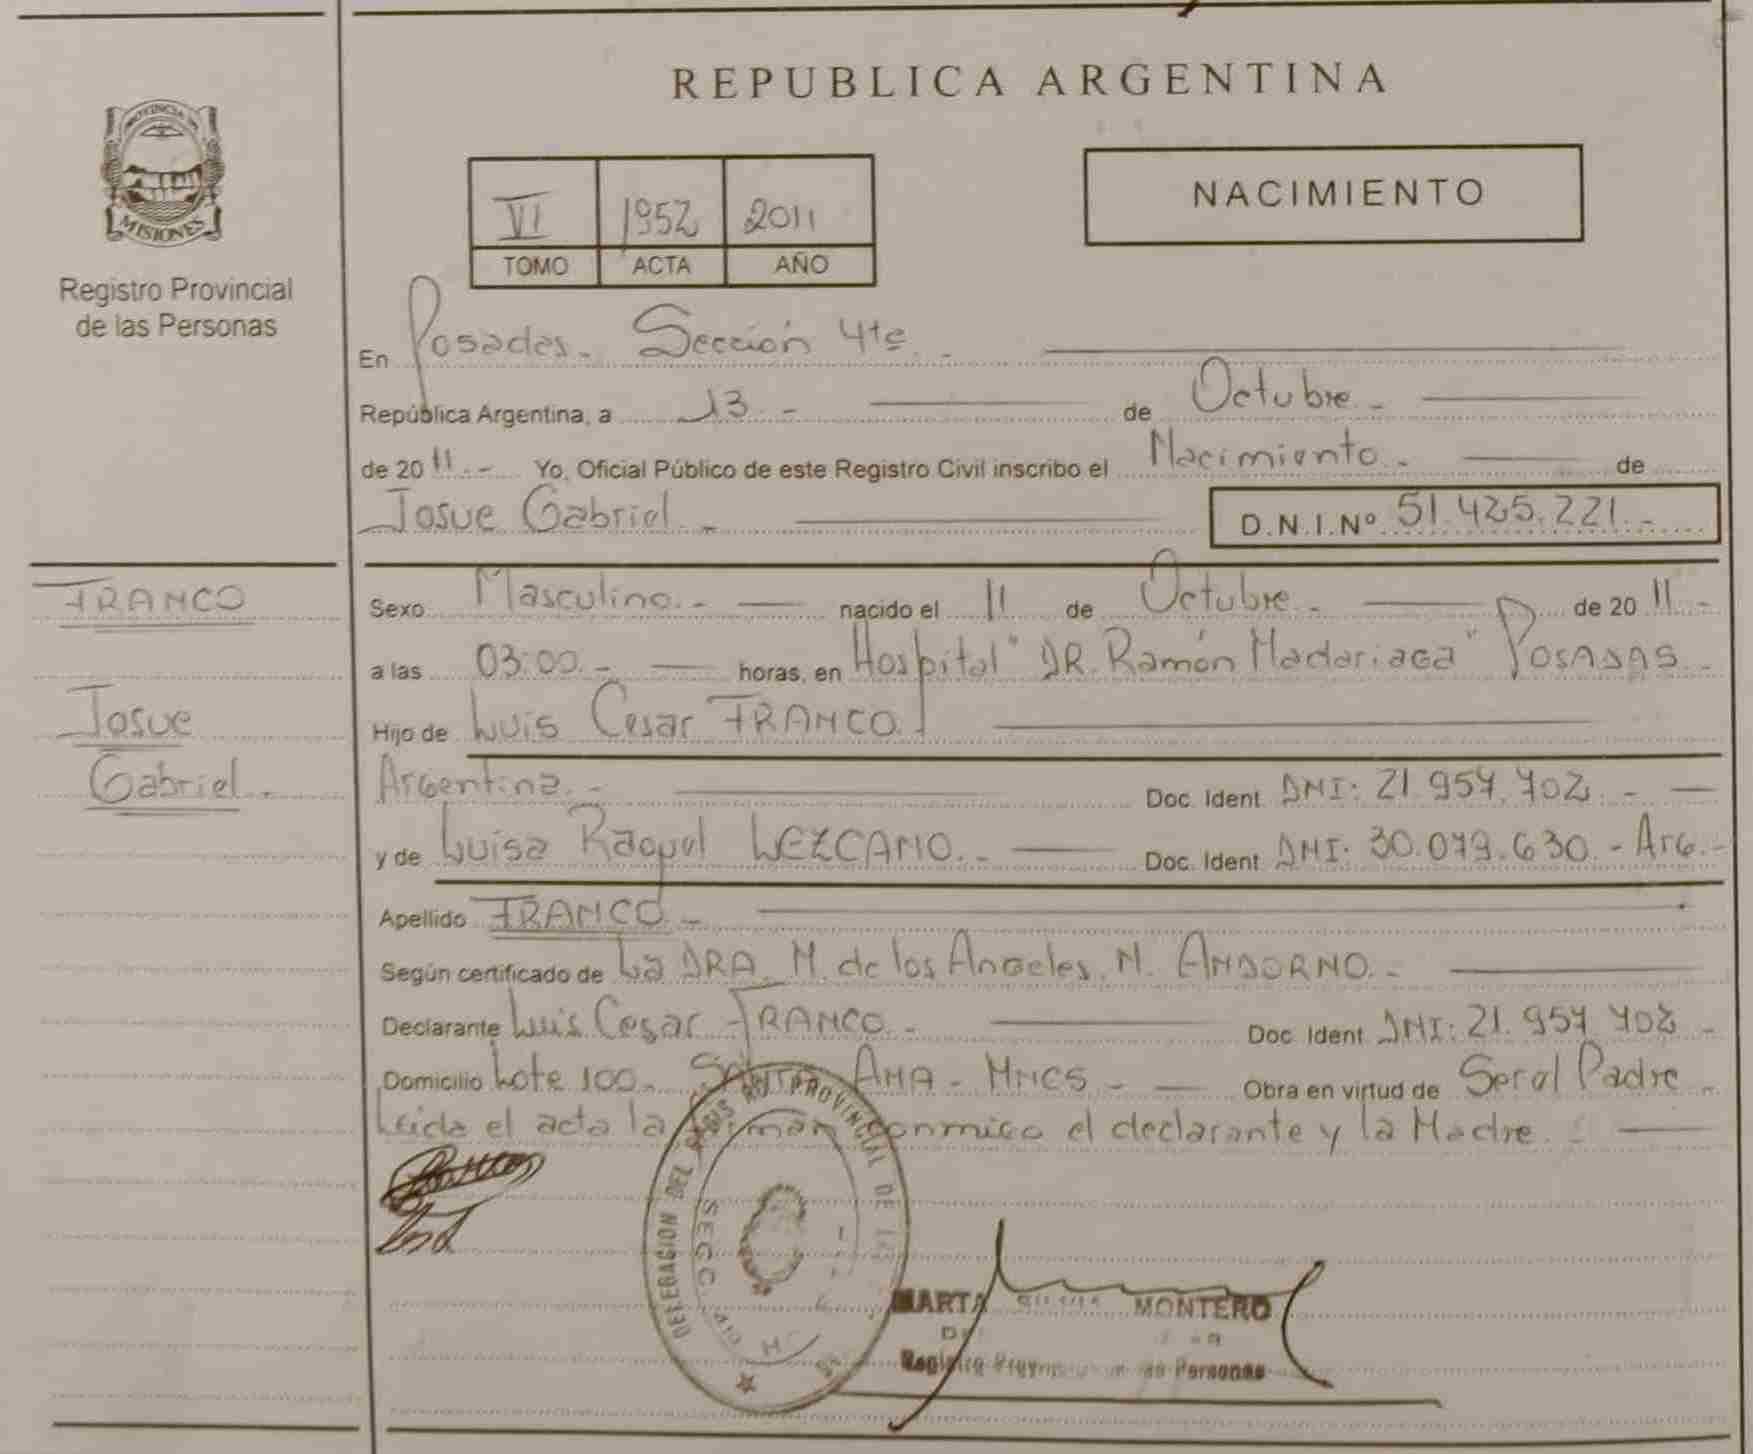 REPUBLICA ARGENTINA
PROVINCIA DE
MISIONES
Registro Provincial
de las Personas
VI 1952 2011
TOMO ACTA AÑO
NACIMIENTO
En Posadas. Sección 4ta.
República Argentina, a 13.- de Octubre.-
de 2011.- Yo, Oficial Público de este Registro Civil inscribo el Nacimiento.- de
Josue Gabriel.- D.N.I.Nº 51.425.221.-
FRANCO
Josue
Gabriel.-
Sexo Masculino.- nacido el 11 de Octubre.- de 2011.-
a las 03:00.- horas, en Hospital "DR. Ramón Madariaga" POSADAS.-
Hijo de Luis Cesar FRANCO
Argentina.- Doc. Ident DNI: 21.957.702.-
y de Luisa Raquel LEZCANO.- Doc. Ident DNI: 30.079.630.- Arg.-
Apellido FRANCO.-
Según certificado de La DRA. M. de los Angeles. N. ANDORNO.-
Declarante Luis Cesar FRANCO.- Doc. Ident DNI: 21.957.702.-
Domicilio Lote 100. SANTA ANA - MNES.- Obra en virtud de Ser el Padre.-
Leida el acta la firman conmigo el declarante y la Madre.
DELEGACION DEL REGISTRO PROVINCIAL DE LAS
SECC. 4ta
MARTA SILVIA MONTERO
Registro Provincial de las Personas